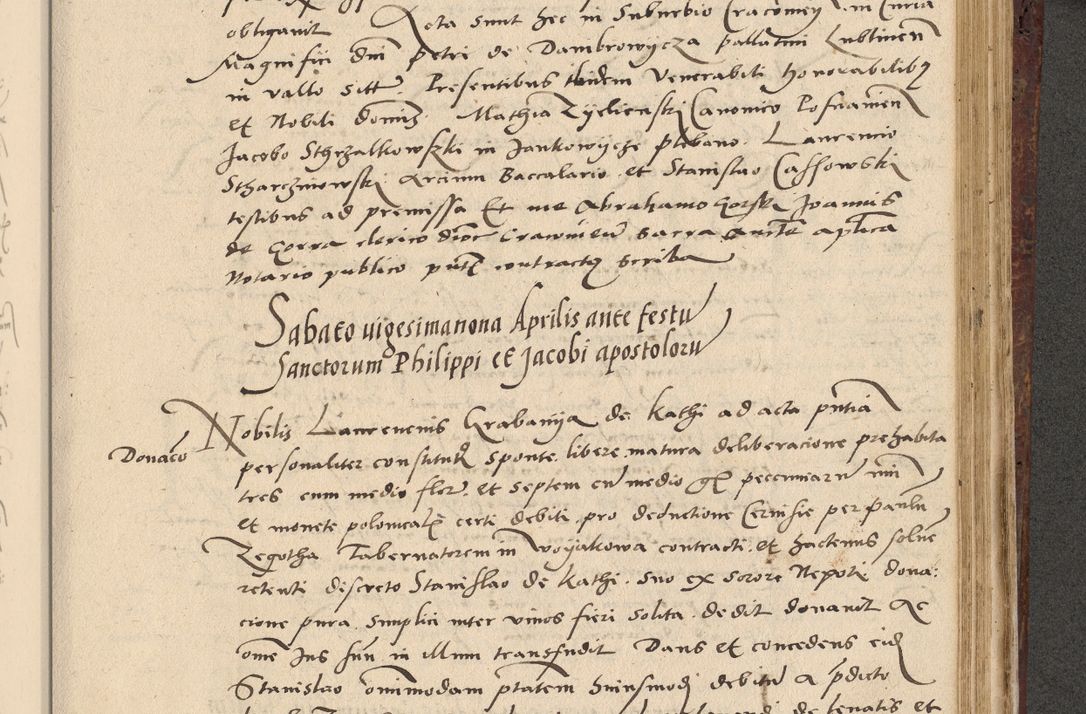 obligavit Acta sunt hec in Suburbio Cracovien in Curia
Magnifici dni Petri de Dambrowycza pallatini Lublinen
in vallo sitt Presentibus ibidem Venerabili honorabilibq
et Nobili dominis Mathia Zyelienski Canonico Posnanien
Jacobo Sthrzalkowski in Jankowycze plebano Laurencio
Stharczinowski Arcium Baccalario et Stanislao Cassowski
testibus ad premissa Et me Abrahamo gorski Joannis
de gorra clerico dioc Cracovien sacra aucte aplica
Notario publico pnt contractq scriba
Sabato vigesimanona Aprilis ante festu
Sanctorum Philippi et Jacobi apostoloru
Nobilis Laurencius Grabanya de Kathi ad acta pntia
Donaco
personaliter constitut sponte libere matura deliberacione prehabita
tres cum medio flor et septem cu medio gr pecuniaru nui
et monete polonicalis certi debiti pro deductione Cervisie per Paulu
Zegotha Tabernatorem in Woyakowa contracti et hactenus solve
retenti discreto Stanislao de Kathi suo ex sorore Nepoti dona:
cione pura simplici inter vivos fieri solita dedit donavit Ac
ome Jus suu in illum transfudit Dans et concedens eid
Stanislao omnimodam ptatem huiusmodi debitu a pdicto
de lenatis et